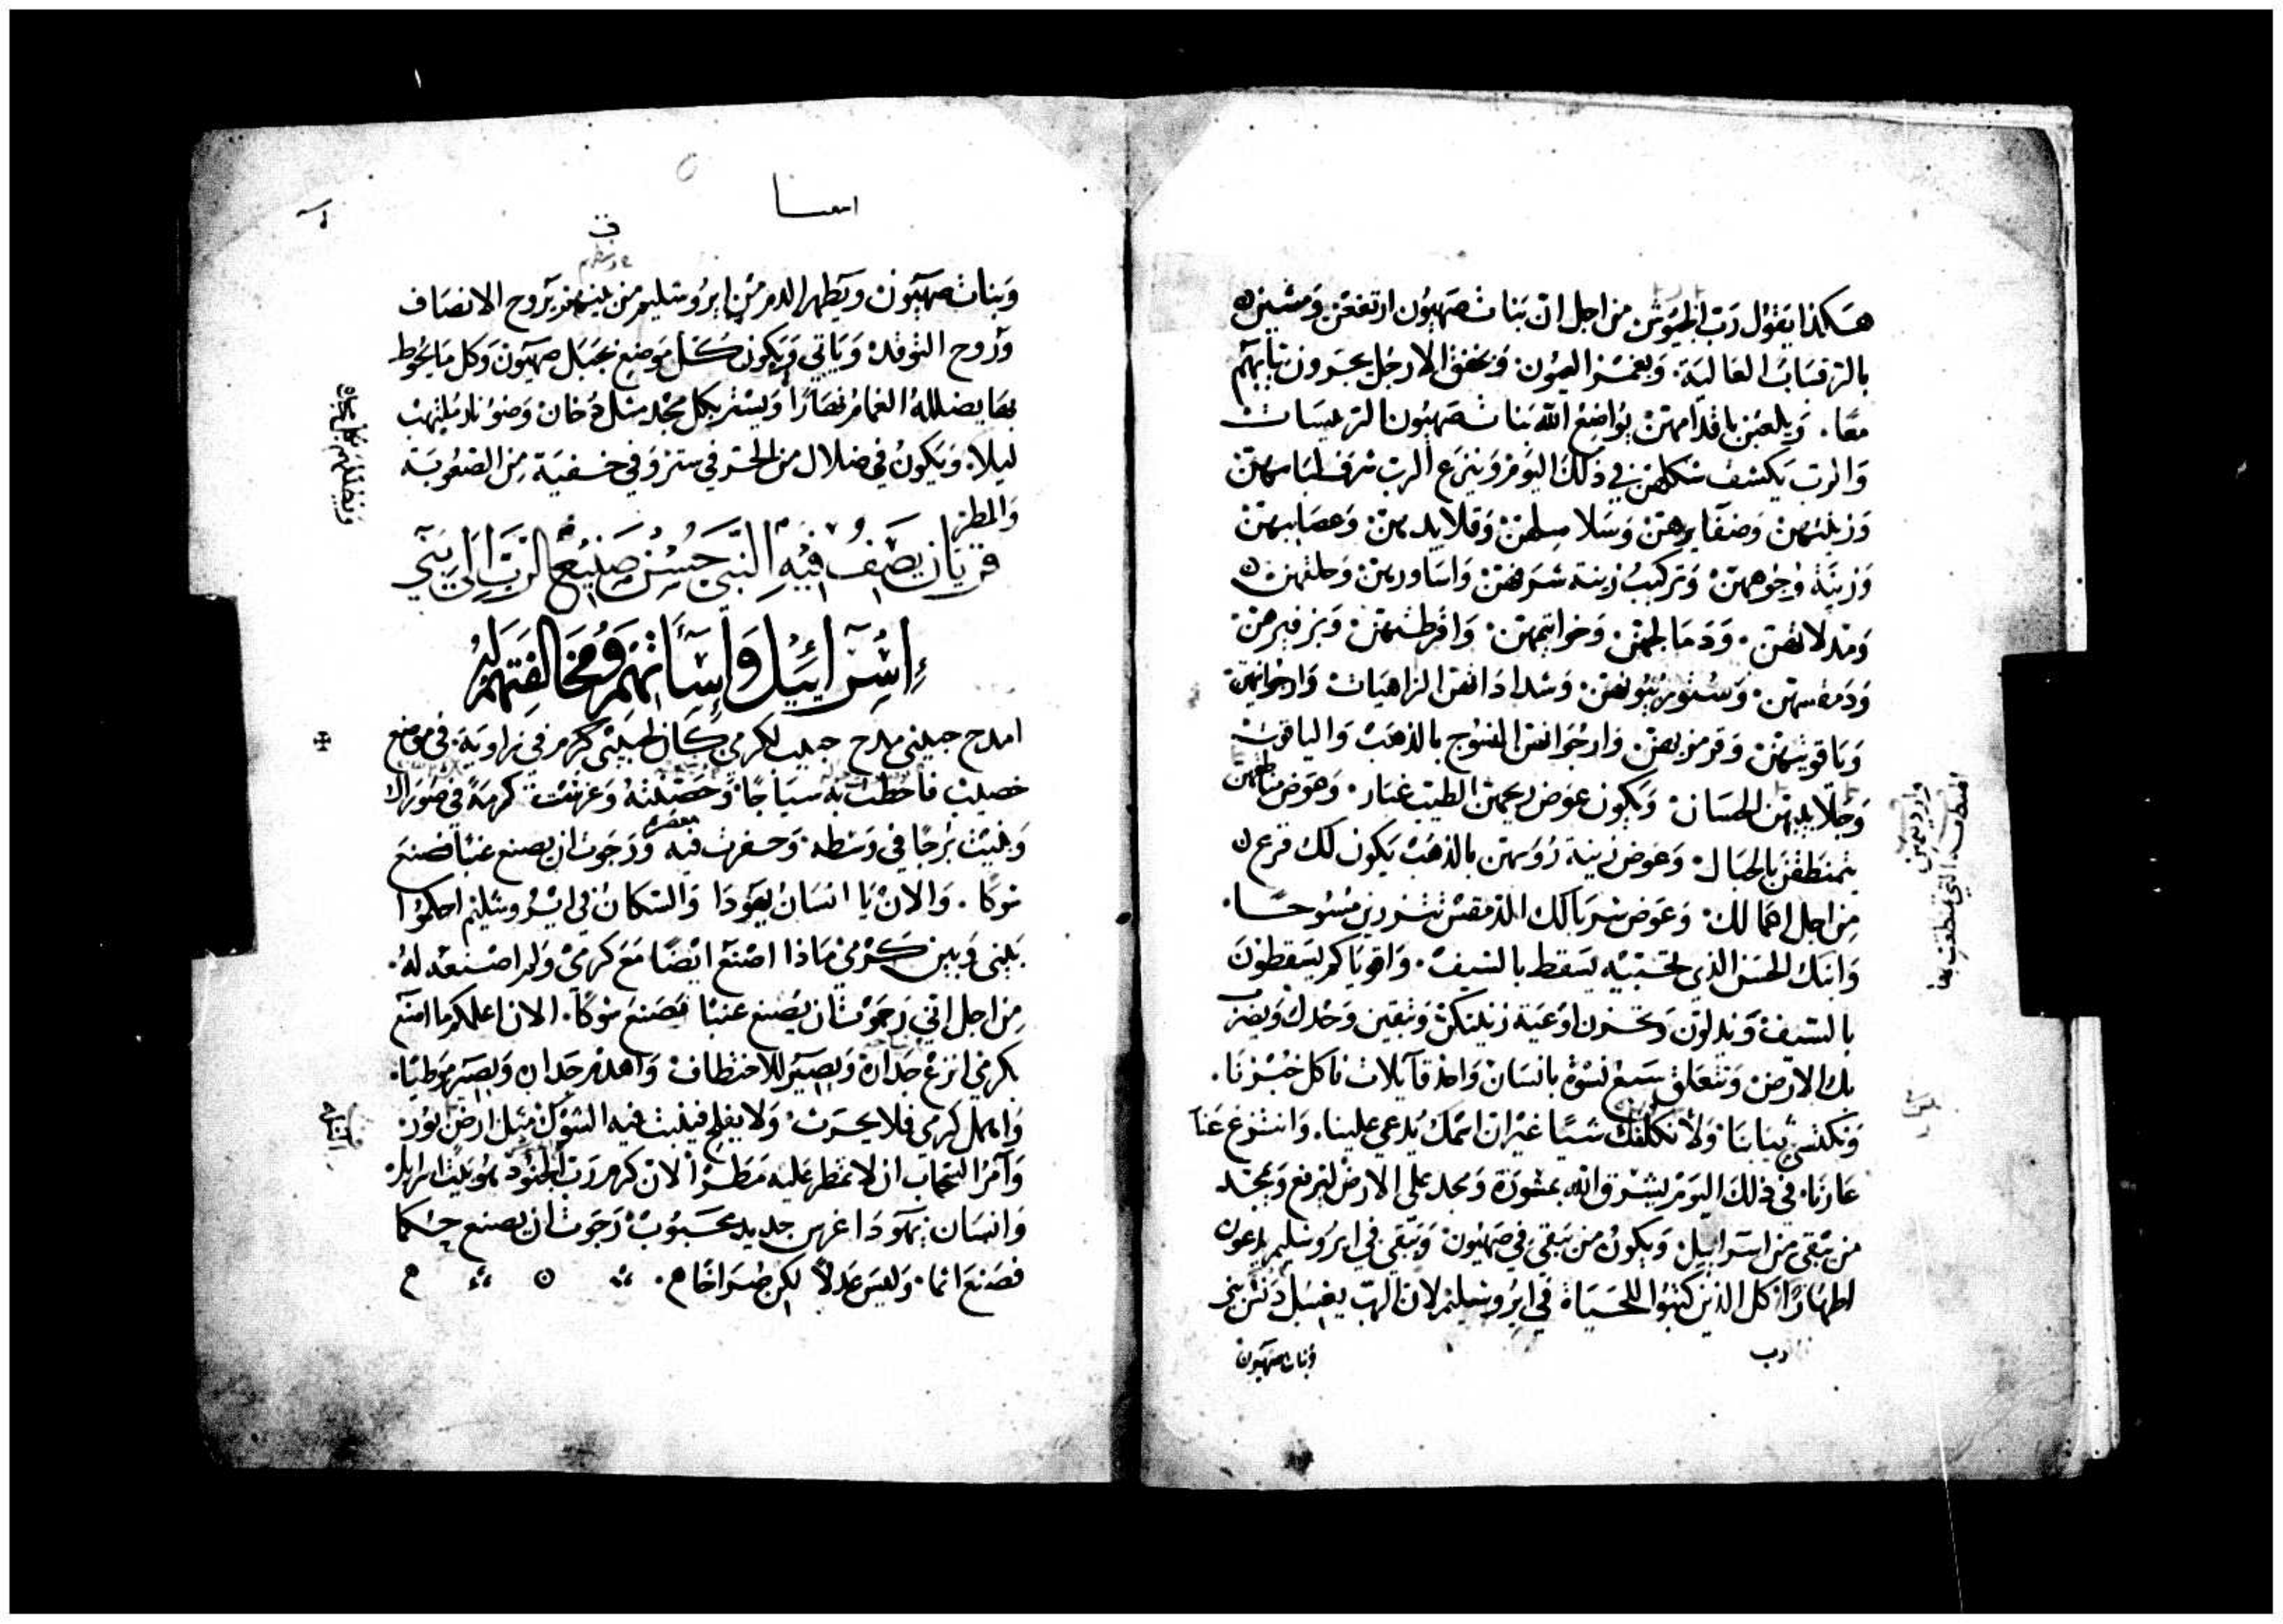 هكذا يقول رب الجيوش من اجل ان بنات صهيون ارتفعن ومشين
بالرقبات العالية. وبغمز العيون. وبخفق الارجل يجرون ثيابهم
معًا. ويلعبن باقدامهن يواضع الله بنات صهيون الرئيسات
والرب يكشف شكلهن في ذلك اليوم وينزع الرب شرف لباسهن
وزينتهن وضفايرهن وسلاسلهن وقلايدهن وعصايبهن
وزينة وجوههن وتركيب زينة شرفهن واساورهن وحلقهن
ودمالجهن. وخواتيمهن. واقرطتهن.
الزاهيات وارجوانهن
وياقوتهن وقرمزيهن. وارجوانهن المنسوج بالذهب والياقوت
الحسان ويكون عوض ريحهن الطيب غبار. وعوض مناطقهن
يتمنطقن بالحبال. وعوض زينة رؤسهن بالذهب يكون لك قرع
من اجل اعمالك. وعوض سربالك تتزرين مسوحًا.
وابنك الحسن الذي تحبيه يسقط بالسيف. واقوياكم يسقطون
بالسيف اوعية زينتكن وتبقين وحدك ويضرب
بك الارض وتتعلق سبع نسوة بانسان واحد قآيلات ناكل خبزنا.
ونكتسي ثيابنا ولا نكلفك شيا غير ان اسمك يدعي علينا. وانتزع عنا
عارنا. في ذلك اليوم يشرق الله بمشورة ومجد على الارض ليرفع ويمجد
من تبقى من اسراييل ويكون من تبقى في صهيون وتبقي في ايروشليم يدعون
اطهارًا كل الذين كتبوا للحياة في ايروشليم لان الرب يغسل دنس بني
وبنات صهيون
وبنات صهيون ويطهر الدم من ايروشليم من بينهم بروح الانصاف
وروح التوقد وياتي ويكون كل موضع بجبل صهيون وكل ما يحوط
بها يضلله الغمام نهارًا ويستر بكل مجد مثل دخان وضو نار تلتهب
ليلا. ويكون في ضلال من الحر في ستر وفي خفية من الصعوبة
والمطر
قريان يصف فيه النبي حسن صنيع الرب الي بني
إسرآئيل وإسآتهم ومخالفتهم له
امدح حبيبي مدح حبيب لكرمي كان لحبيبي كرم في زاوية. في موضع
خصيب فاحطت به سياجًا. وحصنته وغرست كرمة في صوراك
وبنيت برجًا في وسطه. وحفرت فيه معصره ورجوت ان يصنع عنبًا فصنع
شوكا. والان يا انسان يهودا والسكان في ايروشليم احكموا
بيني وبين كرمي ماذا اصنع ايضًا مع كرمي ولم اصنعه له.
من اجل اني رجوت ان يصنع عنبًا فصنع شوكًا. الان اعلمكم ما اصنع
بكرمي انزع جداره ويصير للاختطاف واهدم جداره ويصير موطيًا.
واهمل كرمي فلا يحرث ولا يفلح فينبت فيه الشوك مثل ارض بور.
وآمر السحاب ان لا تمطر عليه مطرًا لان كرم رب الجنود هو بيت اسرايل
وانسان يهودا غرس جديد محبوب رجوت ان يصنع حكما
فصنع اثما. وليس عدلاً لكن صراخًا